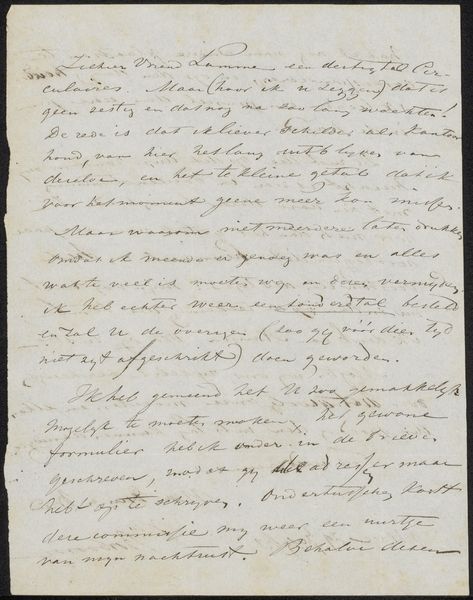 Ziehier Vriend Lamme een dertigtal Cir-
culaires. Maar (hoor ik u zeggen) dat is
geen zestig en dat nog na zoo lang wachten!
De rede is dat ik liever schilder als kantoor
houd, van hier het lang uitblijven van
dezelve, en het te kleine getal dat ik
voor het moment geene meer kon missen.
Maar waarom niet meerdere laten drukken
omdat ik meende er genoeg was en alles
wat te veel is moeten wy en deze vermyden
ik heb echter weer een honderdtal besteld
en zal U de overigen (zoo gy vóór dien tyd
niet zyt afgeschrikt) doen geworden.
Ik heb gemeend het U zoo gemakkelyk
mogelyk te moeten maken, het gewone
formulier heb ik onder in de brieven
geschreven, zodat gy de adressen maar
hebt op te schryven. Ondertusschen kost
deze commissie my weer een uurtje
van myn nachtrust. Behalve dezen